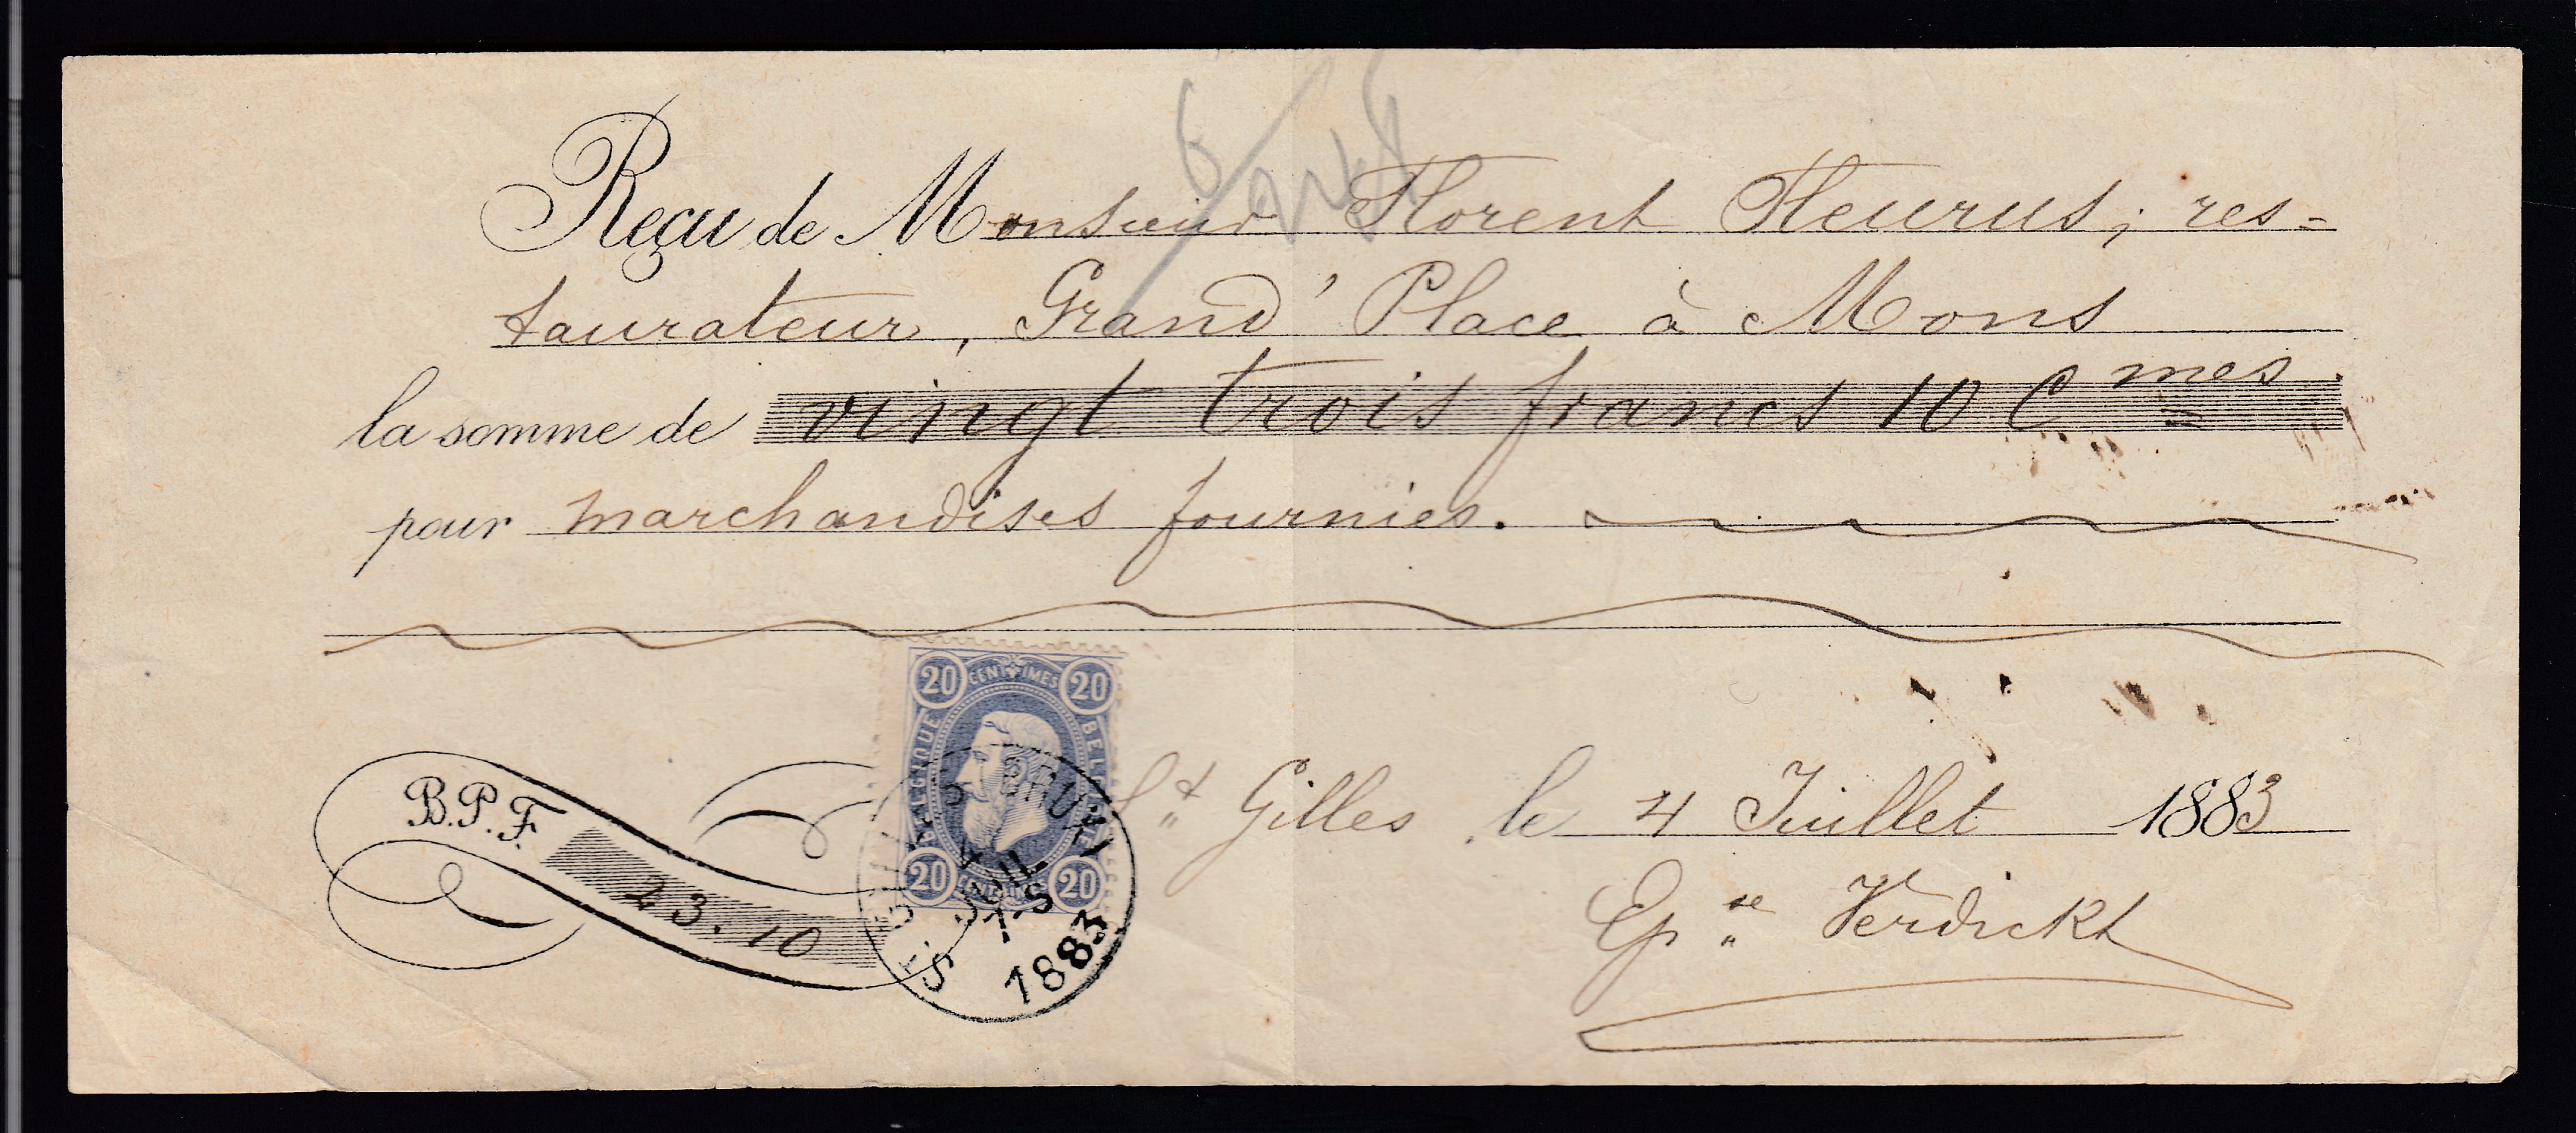 Reçu de Monsieur Florent Fleurus, res=
taurateur, Grand' Place à Mons
la somme de vingt trois francs 10 Cmes
pour marchandises fournies.
20 CENTIMES 20
BELGIQUE BELGIË
20 CENTIMES 20
B.P.F. 23.10
ST GILLES BRUX
4 JUIL
7-S
1883
St Gilles le 4 Juillet 1883
Epse Verdickt